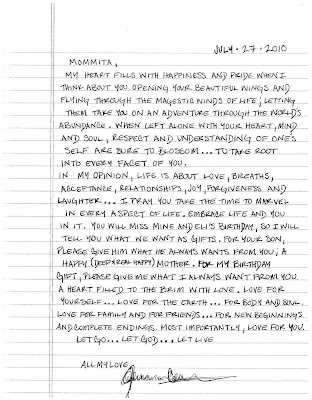 JULY · 27 · 2010
MOMMITA,
MY HEART FILLS WITH HAPPINESS AND PRIDE WHEN I
THINK ABOUT YOU OPENING YOUR BEAUTIFUL WINGS AND
FLYING THROUGH THE MAGESTIC WINDS OF LIFE; LETTING
THEM TAKE YOU ON AN ADVENTURE THROUGH THE WORLD'S
ABUNDANCE. WHEN LEFT ALONE WITH YOUR HEART, MIND
AND SOUL, RESPECT AND UNDERSTANDING OF ONE'S
SELF ARE SURE TO BLOSSOM... TO TAKE ROOT
INTO EVERY FACET OF YOU.
IN MY OPINION, LIFE IS ABOUT LOVE, BREATHS,
ACCEPTANCE, RELATIONSHIPS, JOY, FORGIVENESS AND
LAUGHTER.... I PRAY YOU TAKE THE TIME TO MARVEL
IN EVERY ASPECT OF LIFE. EMBRACE LIFE AND YOU
IN IT. YOU WILL MISS MINE AND ELI'S BIRTHDAY, SO I WILL
TELL YOU WHAT WE WANT AS GIFTS. FOR YOUR SON,
PLEASE GIVE HIM WHAT HE ALWAYS WANTS FROM YOU; A
HAPPY (DEEP & REAL HAPPY) MOTHER. FOR MY BIRTHDAY
GIFT, PLEASE GIVE ME WHAT I ALWAYS WANT FROM YOU.
A HEART FILLED TO THE BRIM WITH LOVE. LOVE FOR
YOURSELF... LOVE FOR THE EARTH... FOR BODY AND SOUL.
LOVE FOR FAMILY AND FOR FRIENDS... FOR NEW BEGINNINGS
AND COMPLETE ENDINGS. MOST IMPORTANTLY, LOVE FOR YOU.
LET GO... LET GOD... LET LIVE
ALL MY LOVE,